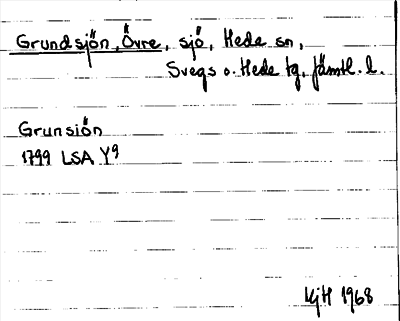 Grundsjön, Övre, sjö, Hede sn,
Svegs o. Hede tg, Jämtl. l.
Grunsiön
1799 LSA Y9
KjH 1968